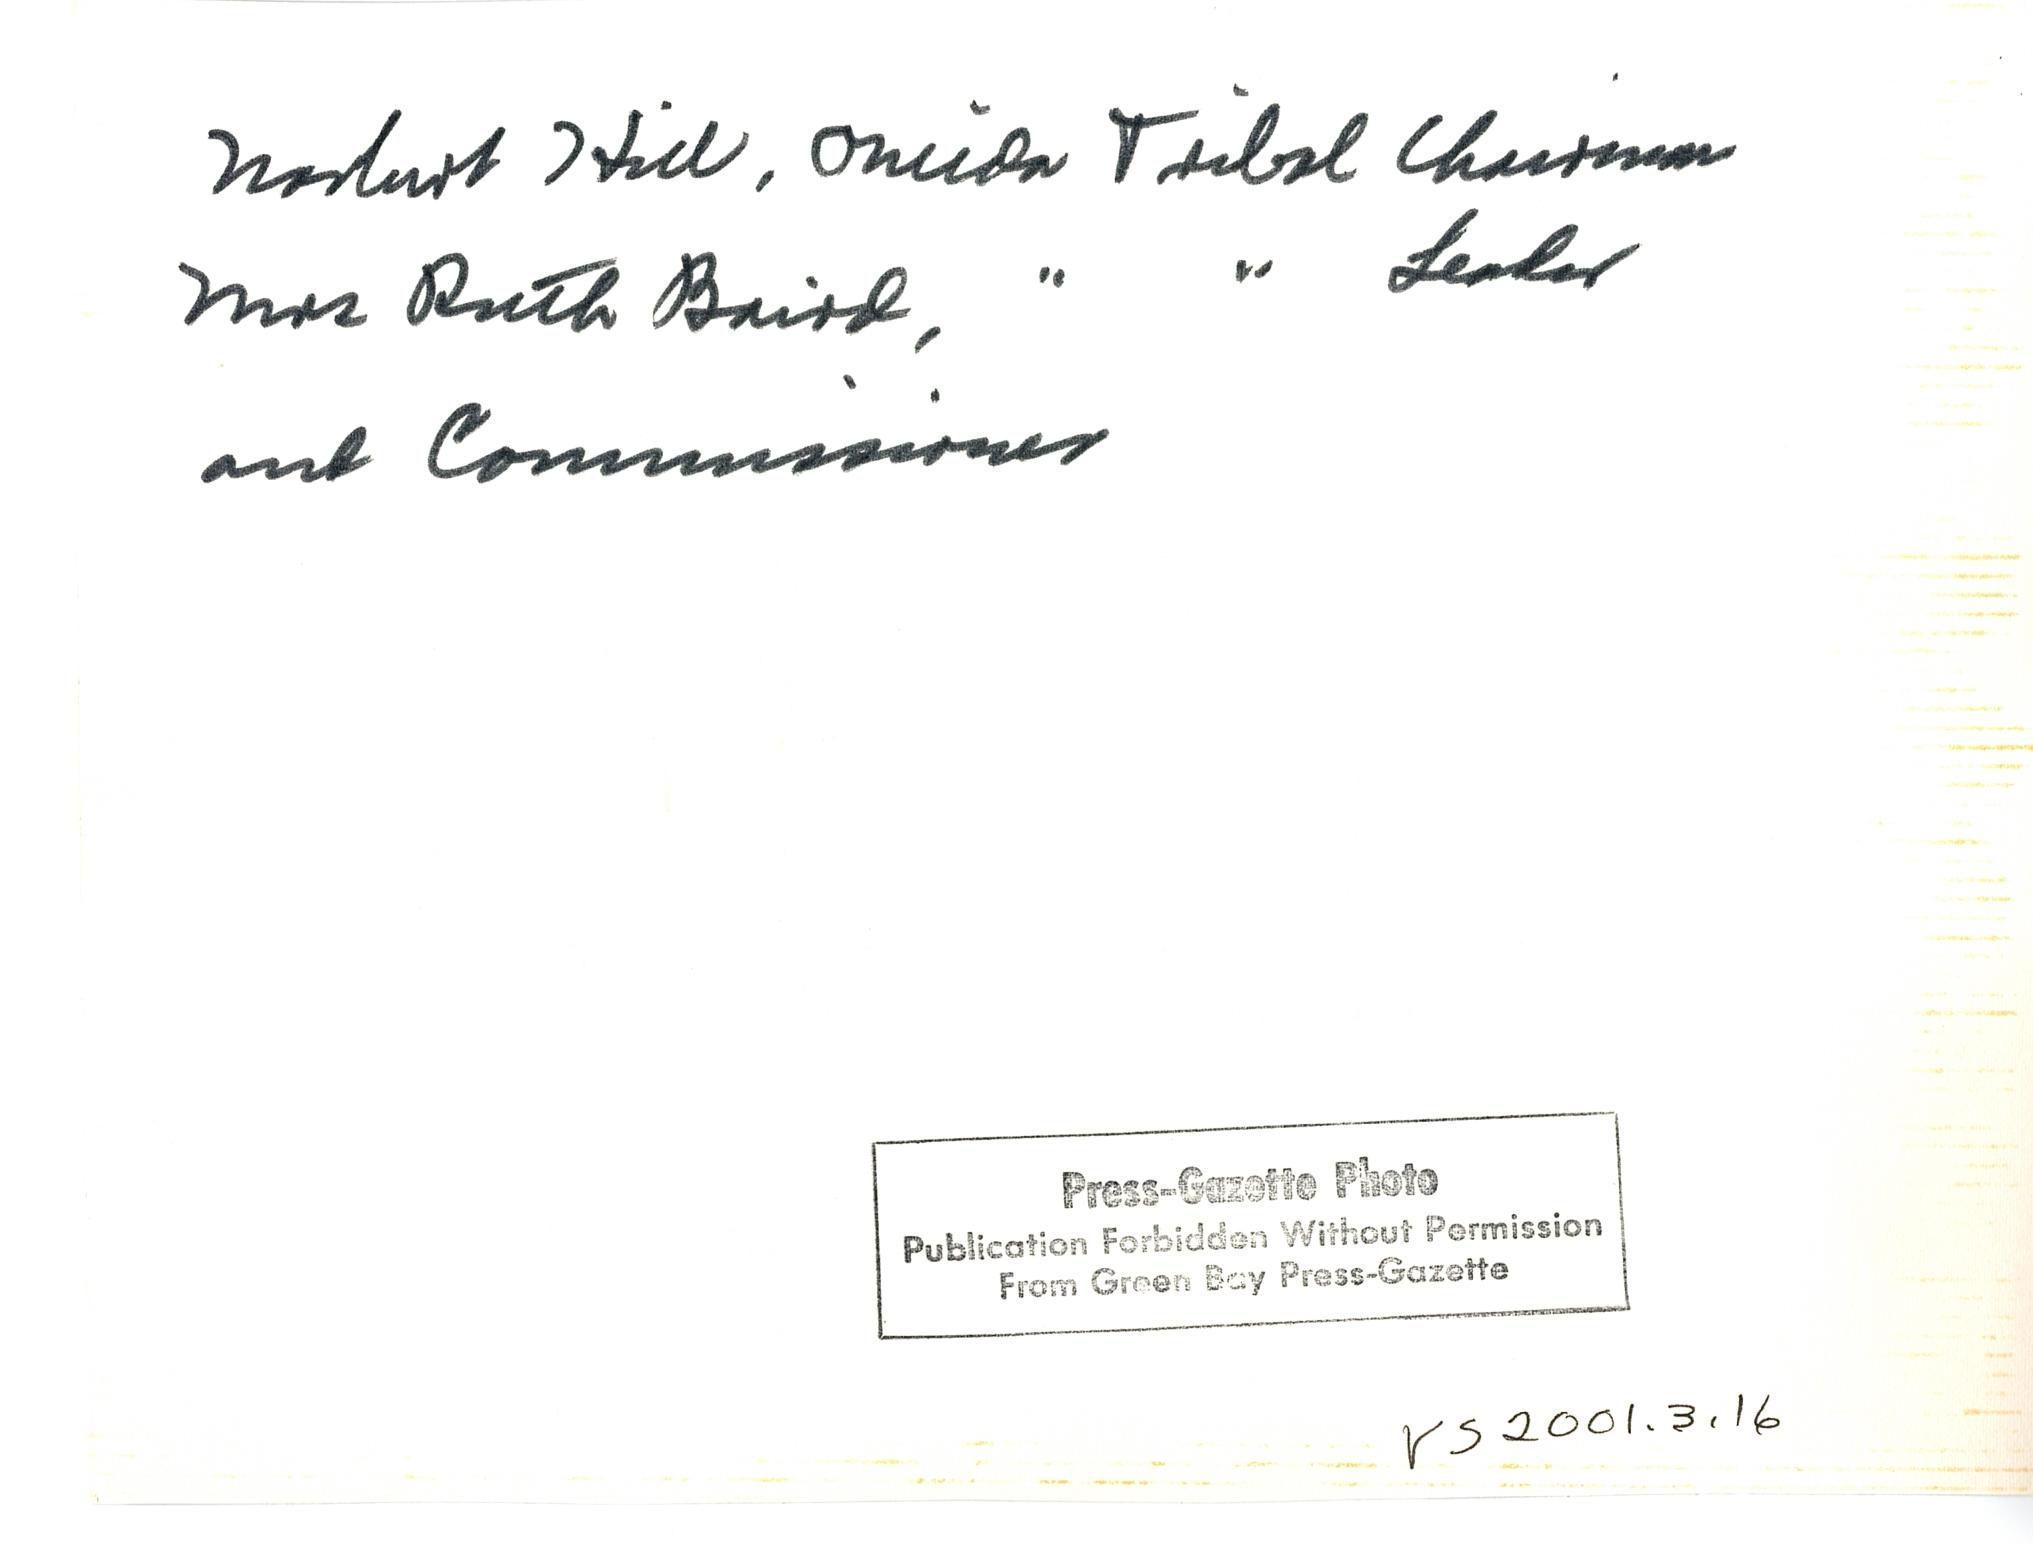 Norbert Hill, Oneida Tribal Chairman
Mrs Ruth Baird, " " Leader
and Commissioner
Press-Gazette Photo
Publication Forbidden Without Permission
From Green Bay Press-Gazette
VS2001.3.16